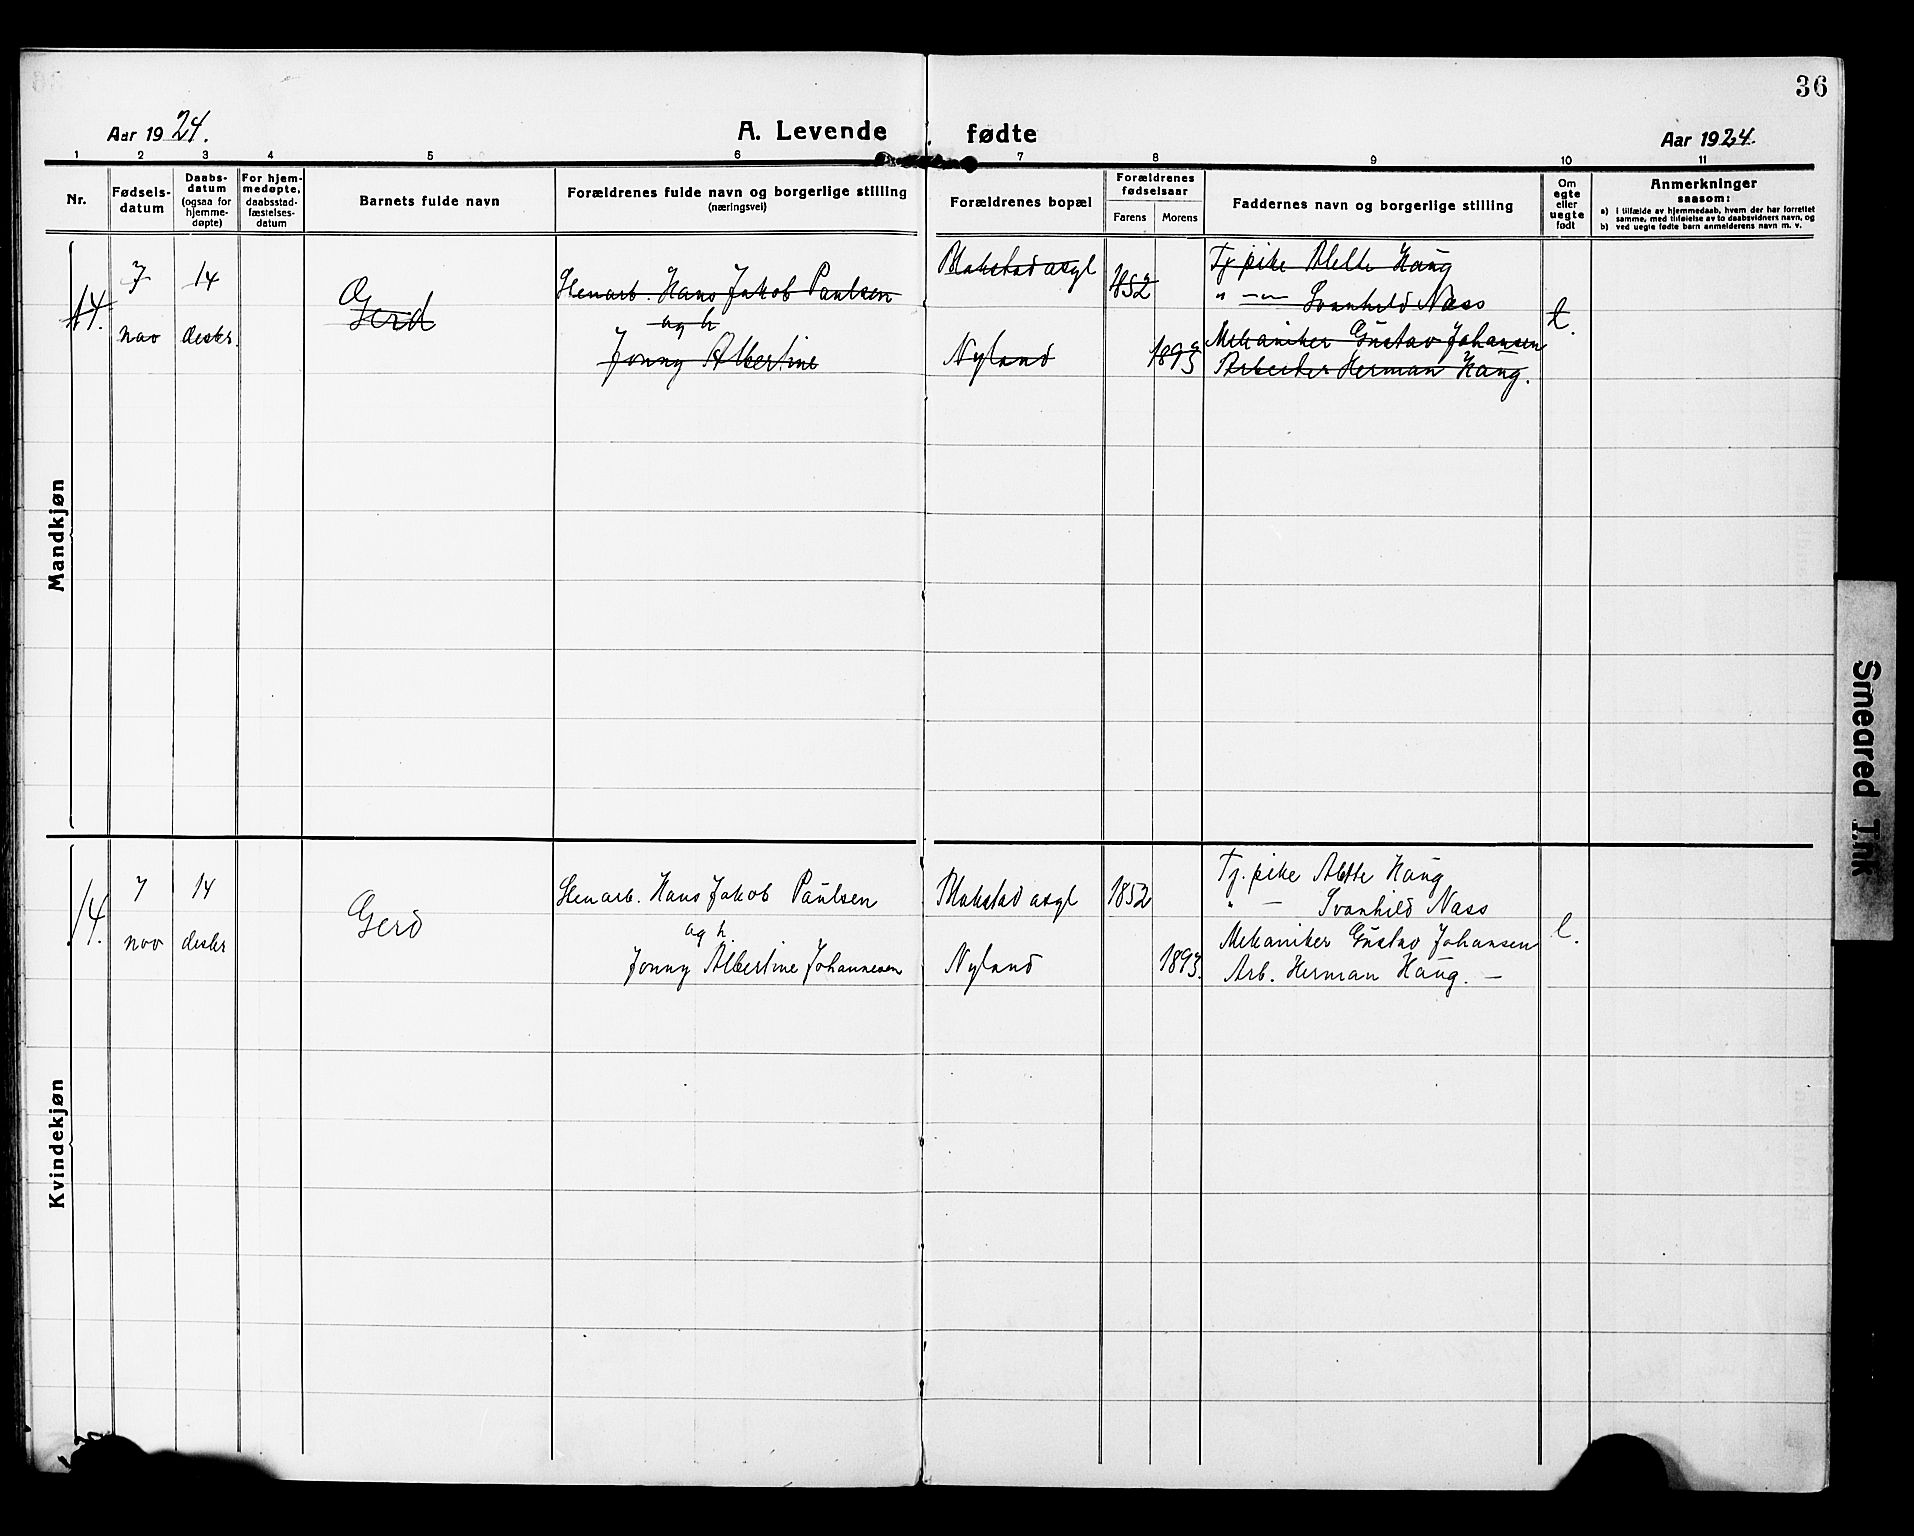 36
Aar 1924.
A. Levende fødte
Aar 1924.
1 2 3 4 5 6 7 8 9 10 11
Nr.
Fødsels-
datum
Daabs-
datum
(ogsaa for
hjemme-
døpte)
For hjem-
medøpte,
daabsstad-
fæstelses-
datum
Barnets fulde navn
Forældrenes fulde navn og borgerlige stilling
(næringsvei)
Forældrenes bopæl
Forældrenes
fødselsaar
Farens Morens
Faddernes navn og borgerlige stilling
Om
egte
eller
uegte
født
Anmerkninger
saasom:
a) i tilfælde av hjemmedaab, hvem der har forrettet
samme, med tilføielse av to daabsvidners navn, og
b) ved uegte fødte barn anmelderens navn m. v.
Mandkjøn
14.
7
nov
14
desbr.
Gerd
Stenarb. Hans Jakob Paulsen
og h
Jonny Albertine
Blakstad asyl
Nyland
1852
1893
Tj. pike Alette Haug
" — Svanhild Næss
Mekaniker Gustav Johansen
Arbeider Herman Haug.
e.
Kvindekjøn
14.
7
nov
14
desbr
Gerd
Stenarb. Hans Jakob Paulsen
og h.
Jonny Albertine Johannesen
Blakstad asyl
Nyland
1852
1893.
Tj. pike Alette Haug
" — Svanhild Næss
Mekaniker Gustav Johansen
Arb. Herman Haug. —
e.
Smeared Ink